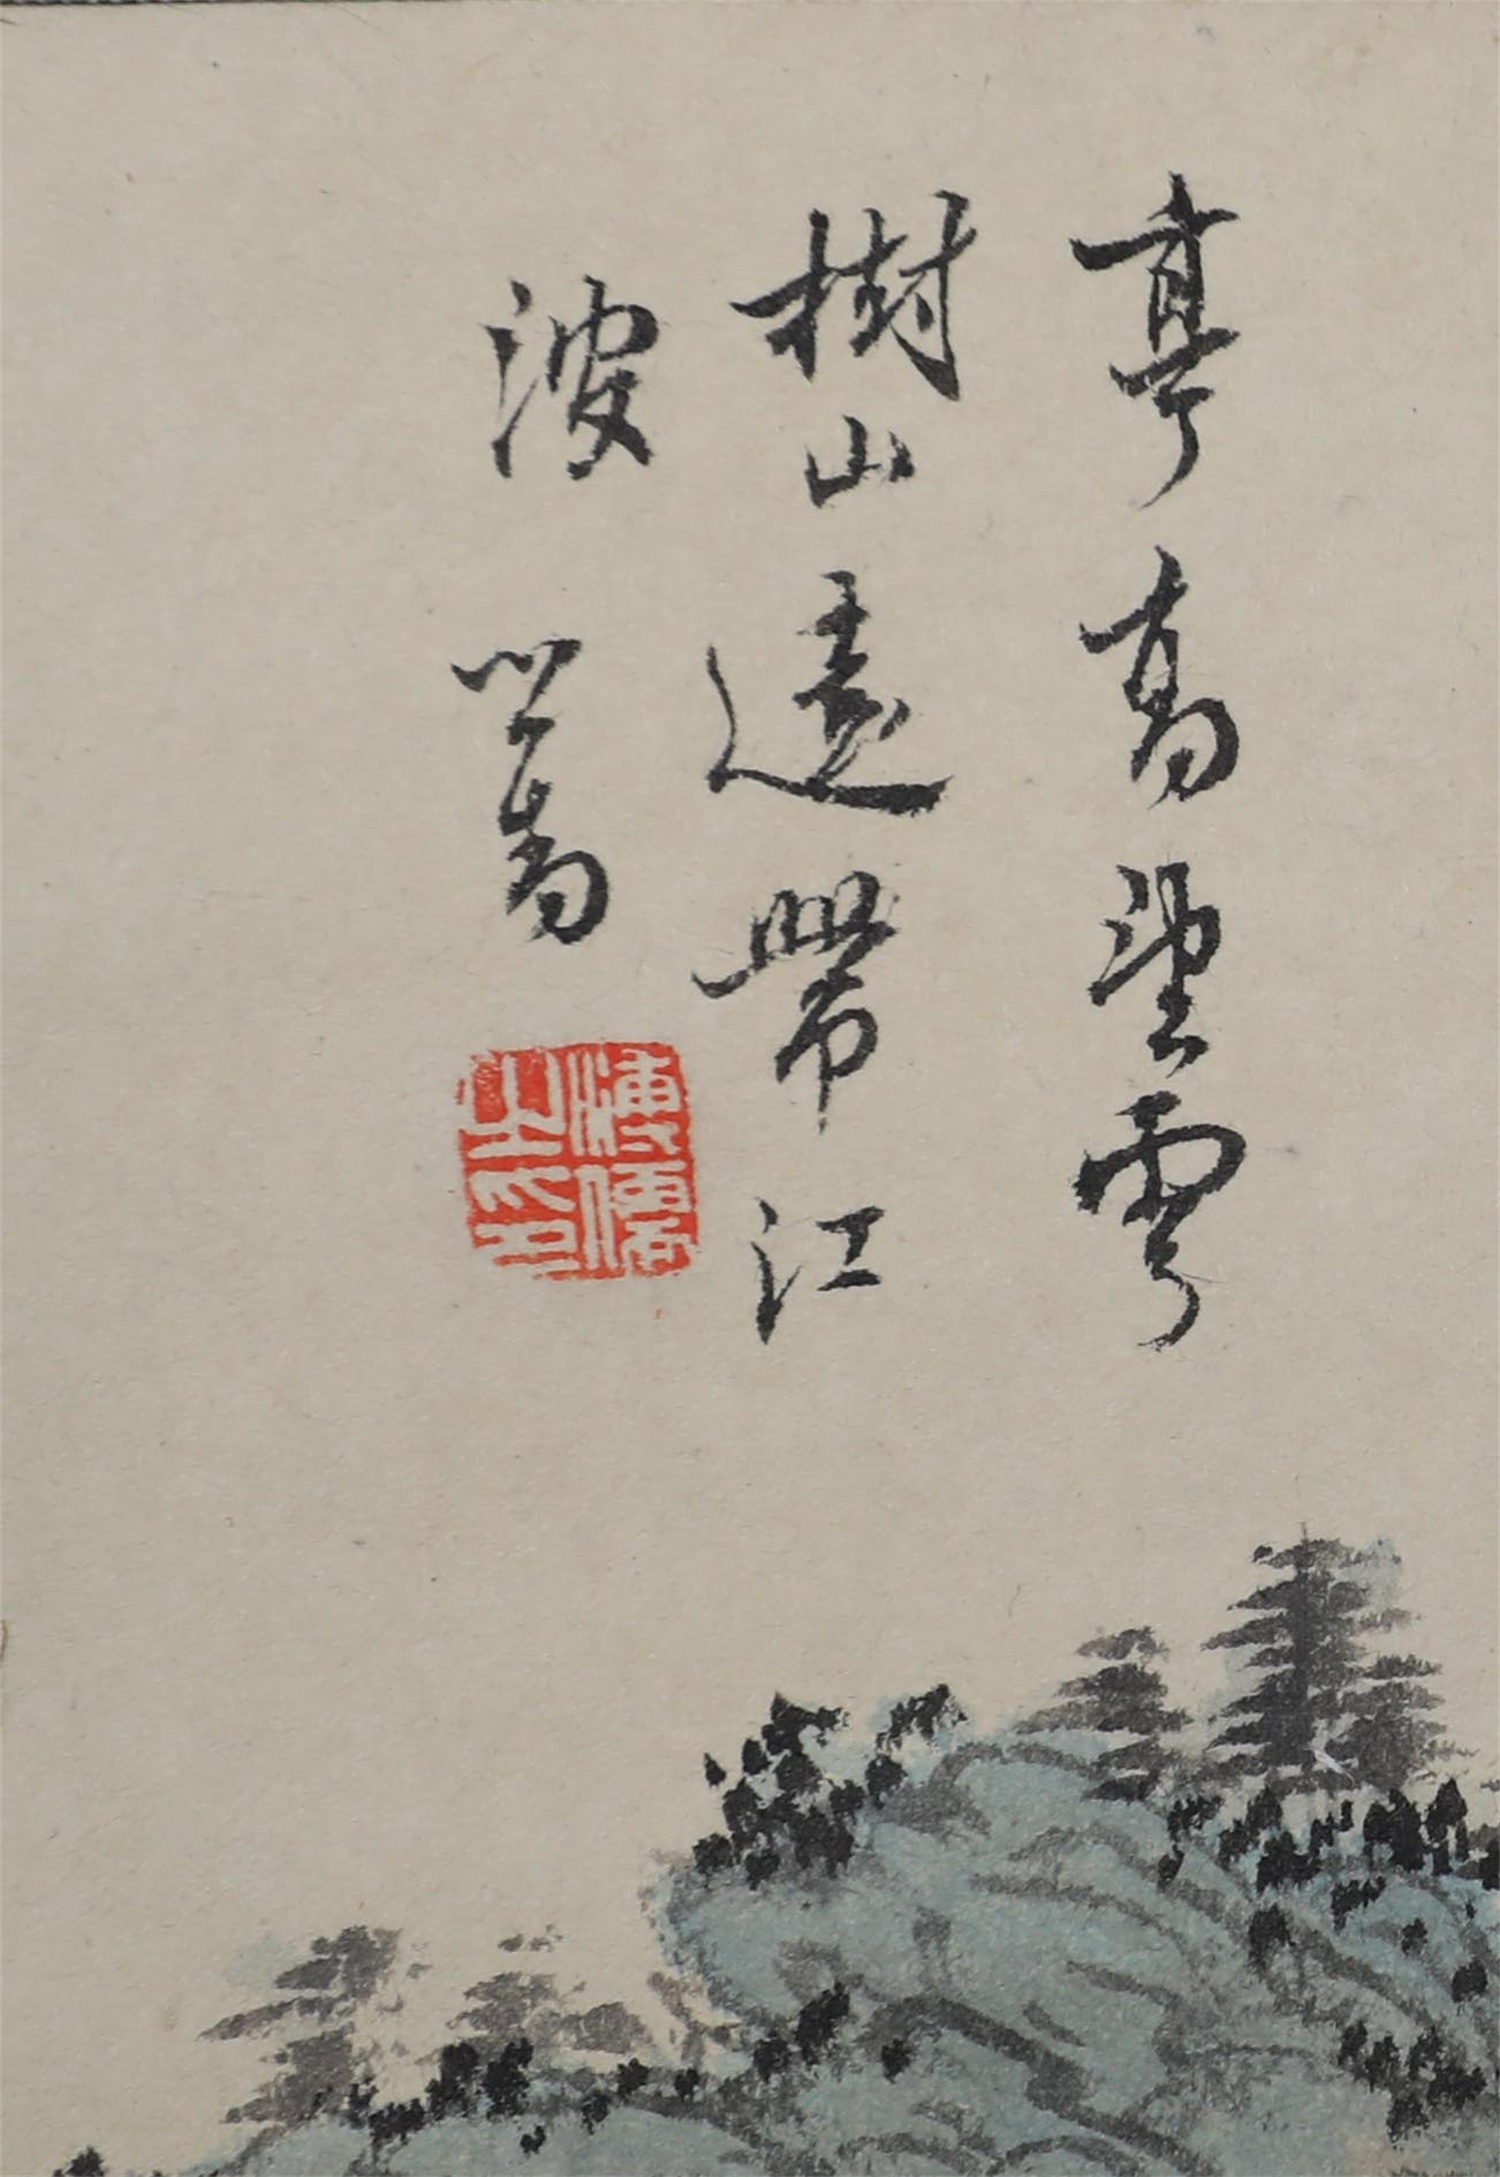 亭高望雲
樹山遠帶江
波 心畬
溥儒
之印